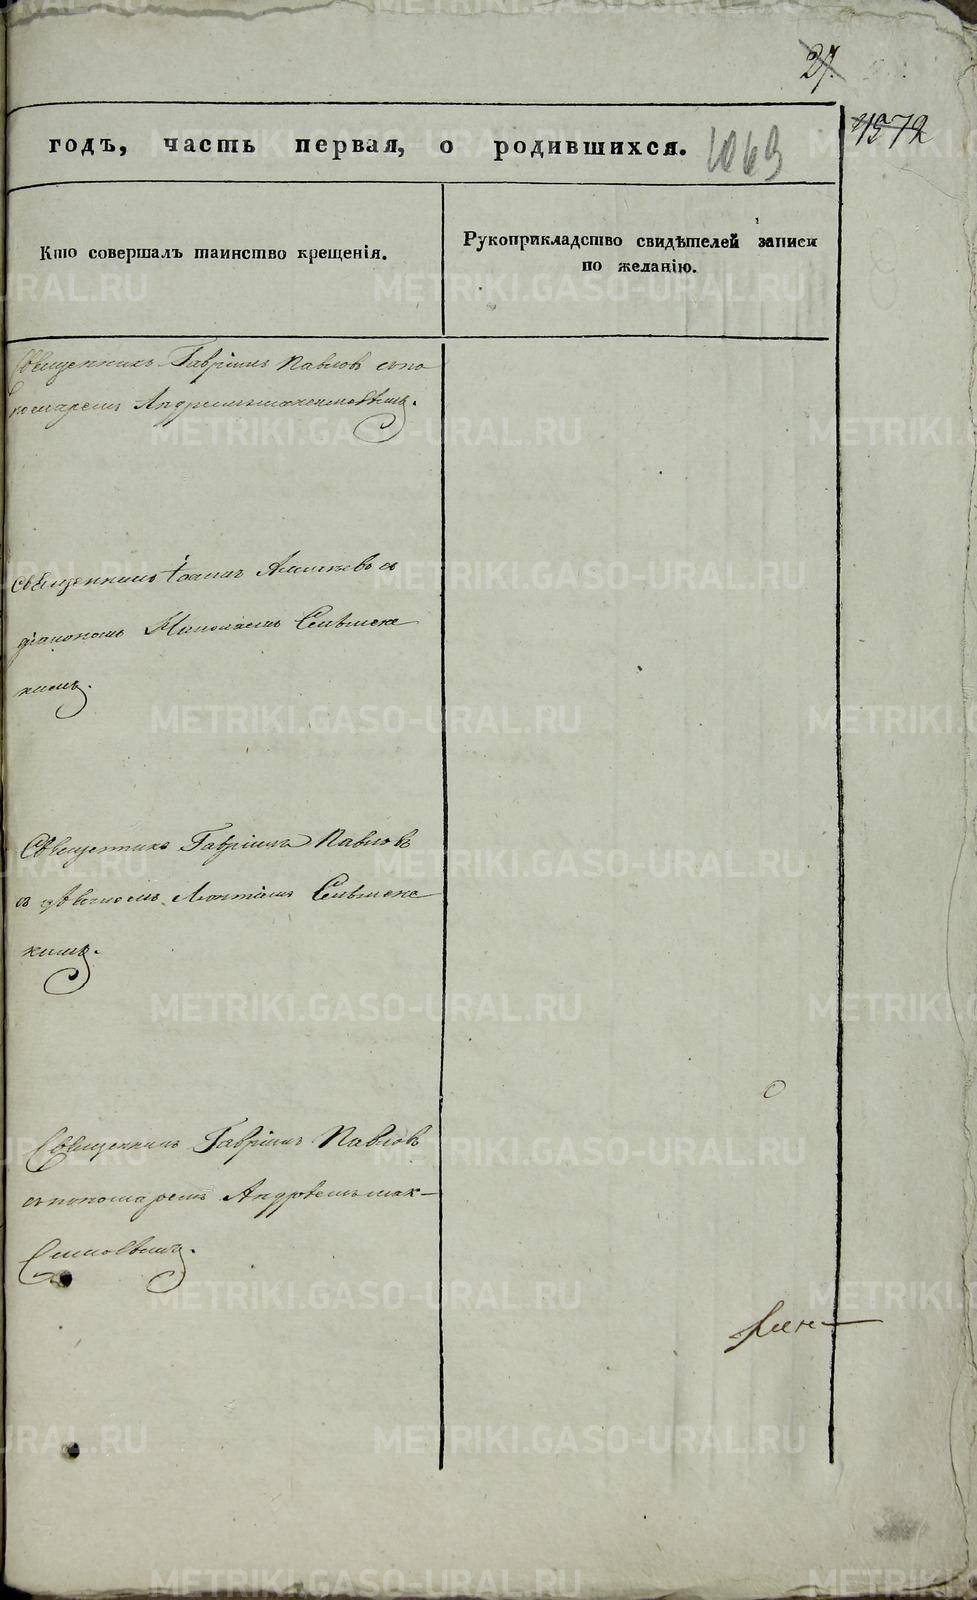 27.
4572
годъ, часть первая, о родившихся. 1063
Кто совершалъ таинство крещенія.
Рукоприкладство свидѣтелей записи
по желанію.
Священникъ Гавріилъ Павловъ с по
номаремъ Андреемъ
Священникъ Іоаннъ съ
діакономъ Николаемъ Сельменс
кимъ.
Священникъ Гавріилъ Павловъ
съ Сельменс
кимъ.
Священникъ Гавріилъ Павловъ
съ пономаремъ Андреемъ Мак-
симовымъ.
METRIKI.GASO-URAL.RU